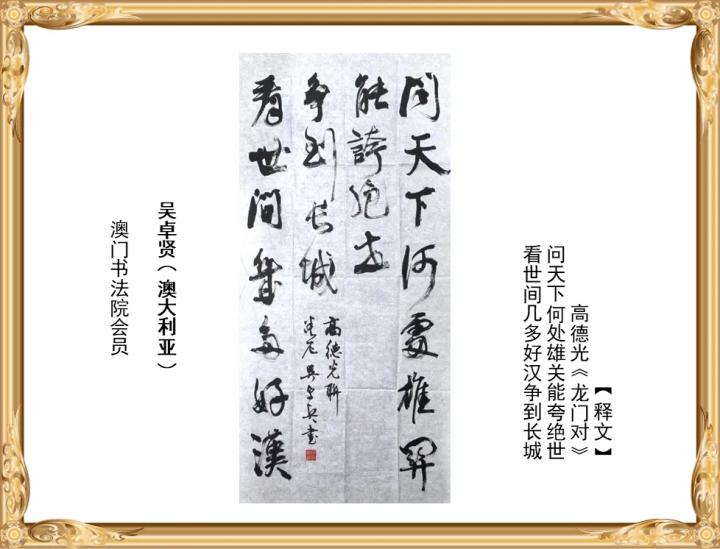 【释文】
高德光《龙门对》
问天下何处雄关能夸绝世
看世间几多好汉争到长城
问天下何處雄関
能誇绝世
看世间幾多好漢
争到长城
高德光联
悉尼吴卓贤书
吴卓贤（澳大利亚）
澳门书法院会员